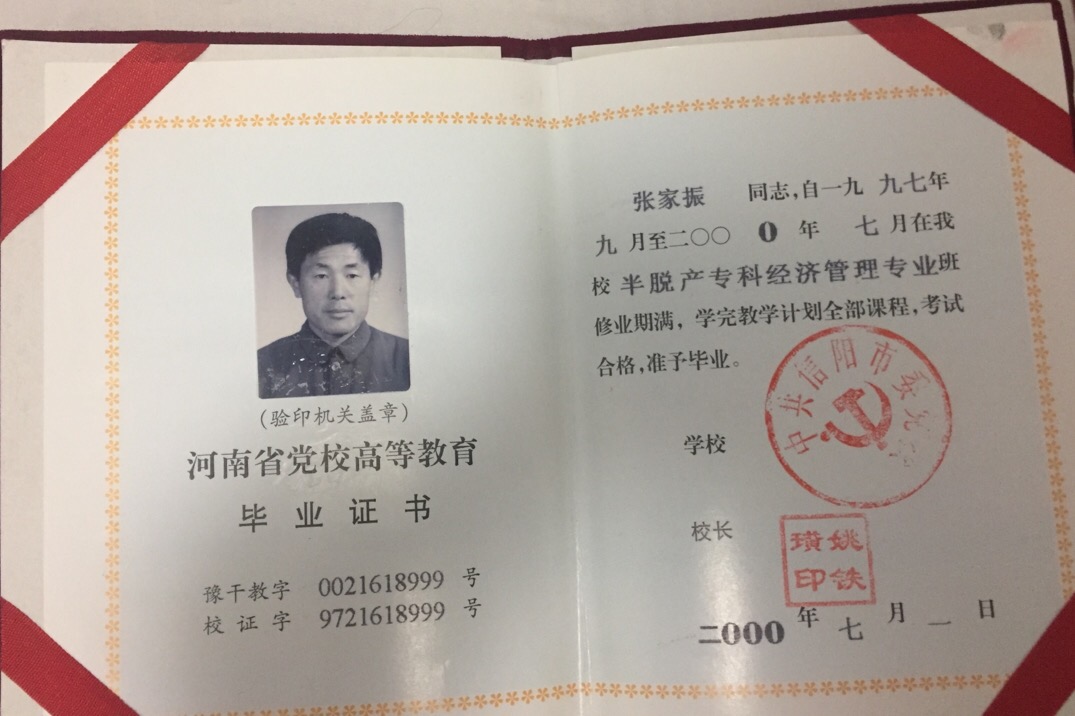 (验印机关盖章)
河南省党校高等教育
毕业证书
豫干教字 0021618999 号
校证字 9721618999 号
张家振 同志,自一九九七年
九月至二〇〇0年 七月在我
校半脱产专科经济管理专业班
修业期满,学完教学计划全部课程,考试
合格,准予毕业。
中共信阳市委党
学校
校长
姚铁璜印
二000年七月一日